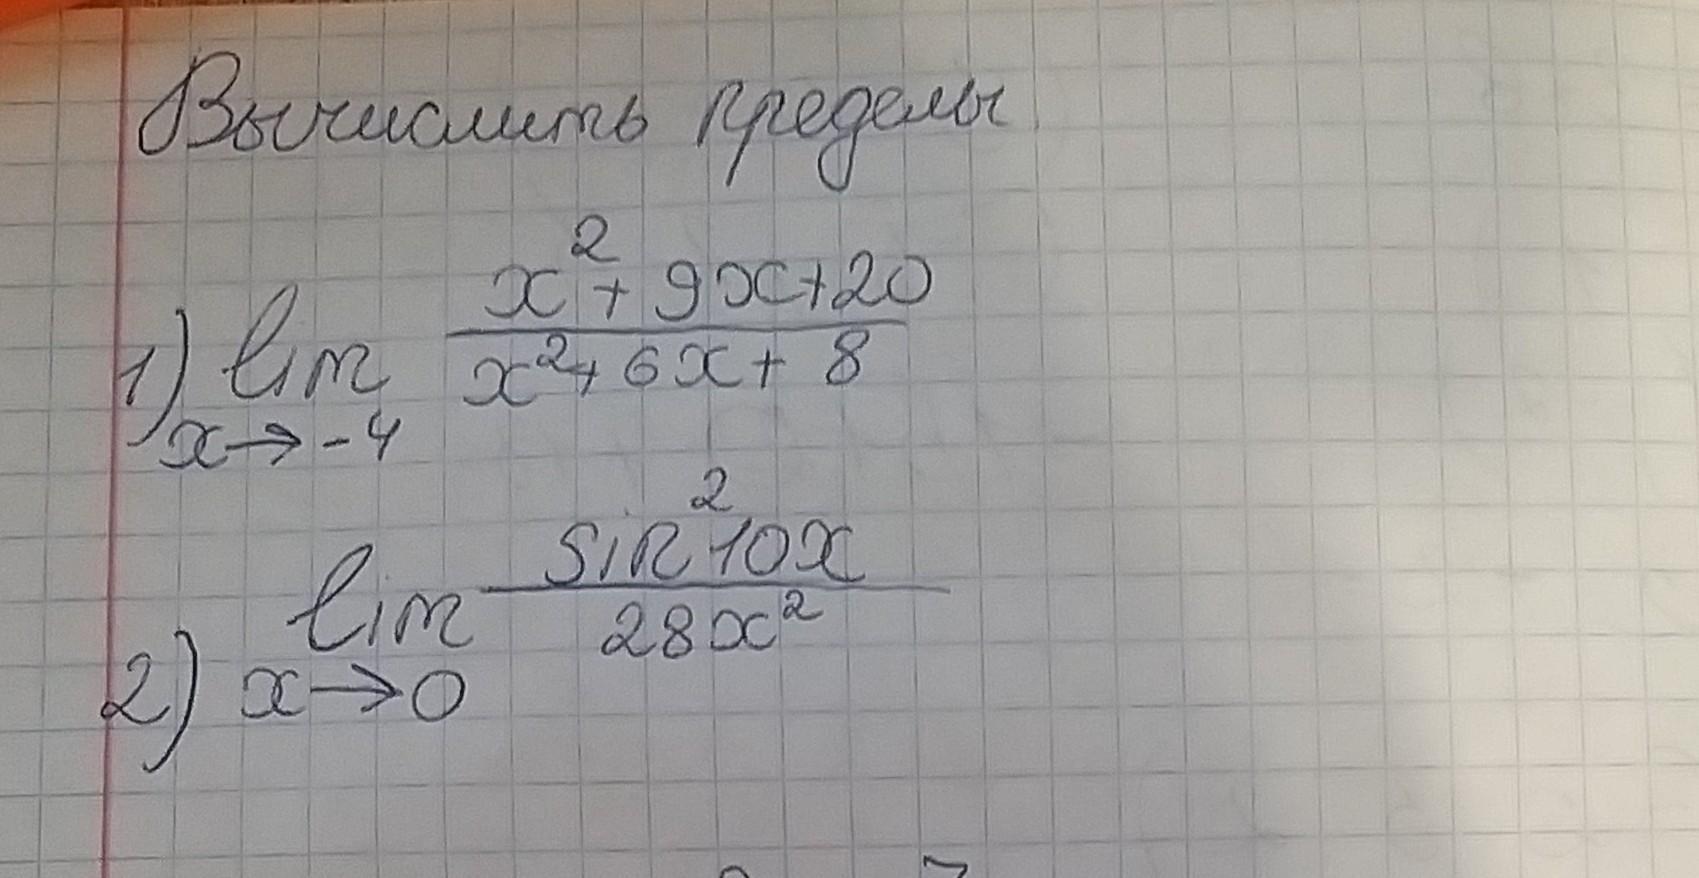 Вычислить пределы
1) lim x→-4 (x²+9x+20)/(x²+6x+8)
2) lim x→0 (sin²10x)/(28x²)